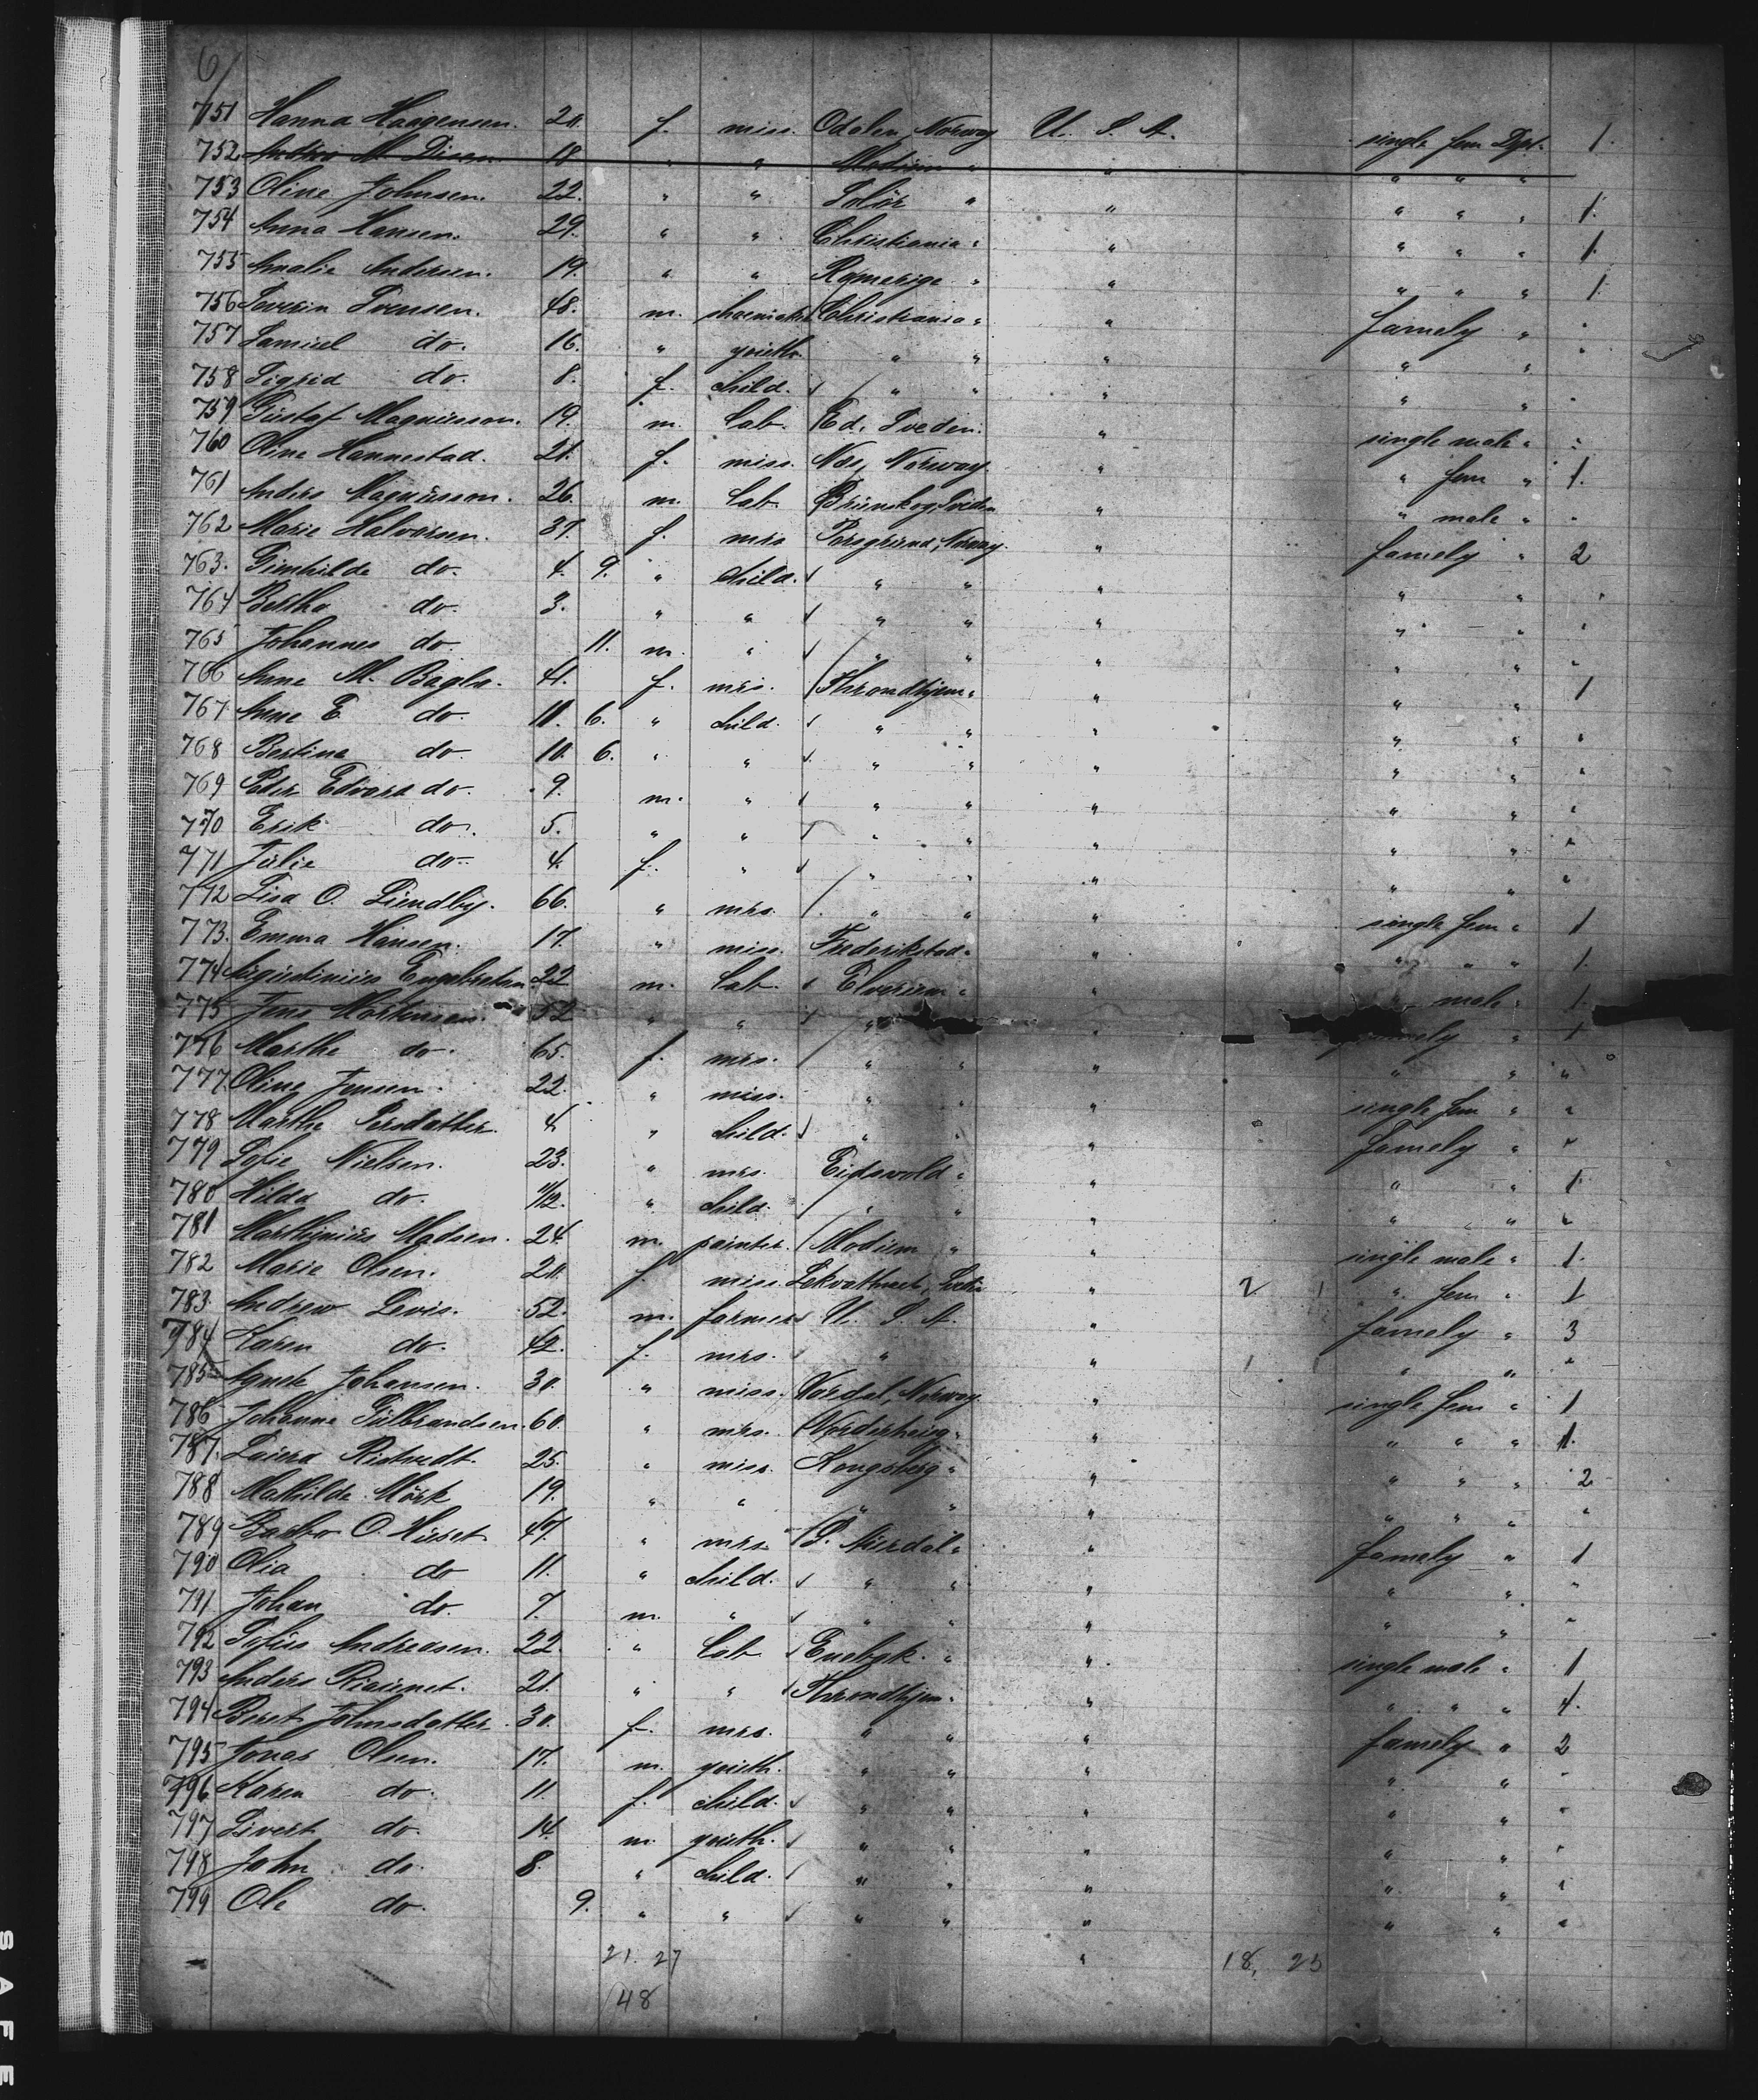 6/
751 Hanna Haagensen. 20. f. miss. Odalen, Norway U. S. A. single fem Dpt. 1.
752 M. Disen 18 " " Modum " " " " "
753 Oline Johnsen. 22. " " Solör " " " " " 1.
754 Anna Hansen. 29. " " Christiania " " " " " 1.
755 Amalie Andersen. 19. " " Romerige " " " " " 1.
756 Severin Svensen. 48. m. shoemaker Christiania " " famely " "
757 Samuel do. 16. " youth. " " " " " "
758 Sigrid do. 8. f. child. " " " " " "
759 Gustaf Magnusson. 19. m. Lab. Ed. Sveden. " single male " "
760 Oline Hannestad. 21. f. miss. Næs, Norway. " " fem " 1.
761 Anders Magnusson. 26. m. Lab. Brunskog, Sveden " " male " "
762 Marie Halvorsen. 37. f. mrs Porsgrund, Norway. " famely " 2
763. Gunhilde do. 4. 9. " child. " " " " " "
764 Bertha do. 3. " " " " " " " "
765 Johannes do. 11. m. " " " " " " "
766 Anne M. Bagla. 41. f. mrs. Throndhjem " " " " 1
767 Anne E do. 11. 6. " child. " " " " " "
768 Bertine do 10. 6. " " " " " " " "
769 Peder Edvard do. 9. m. " " " " " " "
770 Erik do. 5. " " " " " " " "
771 Julie do. 4. f. " " " " " " "
772 Lisa O. Lundby. 66. " mrs. " " " single fem " 1
773. Emma Hansen. 17. " miss. Frederikstad " " " " " 1.
774 Augustinius Engebretsen. 22 m. Lab. Elverum " " " male " 1.
775 Jens Mortensen. 52 " " " " famely " 1
776 Marthe do. 65. f. mrs. " " " " " "
777. Oline Jensen. 22. " miss. " " " single fem " "
778 Marthe Persdatter. 4. " child. " " " famely " "
779 Sofie Nielsen. 23. " mrs. Eidsvold " " " " 1.
780 Hilda do. 11/12. " child. " " " " " "
781 Marthinius Madsen. 24. m. painter. Modum " " single male " 1.
782 Marie Olsen. 20. f. miss. Lekvattnet, Sveden " 2 1 " fem " 1
783. Andrew Levis. 52. m. farmer U. S. A. " famely " 3
784 Karen do. 42. f. mrs. " " 1 1 " " "
785 Agnete Johansen. 30. " miss. Vordal, Norway. " single fem " 1
786 Johanne Gulbrandsen. 60. " mrs. Norderhoug " " " " " 1.
787. Laura Ristvedt. 25. " miss. Kongsberg " " " " " 2
788 Mathilde Mörk 19. " " " " " " " " "
789 O. Huset 47. " mrs. S. Aurdal " " famely " 1
790 Olia do 11. " child. " " " " " "
791 Johan do. 7. m. " " " " " " "
792 Sofus Andreasen. 22. " Lab. Enebak. " " single male " 1
793 Anders 21. " " Throndhjem " " " " " 4.
794 Beret Johnsdatter 30. f. mrs. " " " famely " 2
795 Jonas Olsen. 17. m. youth. " " " " " "
796 Karen do. 11 f. child. " " " " " "
797 Sivert do. 14. m. youth. " " " " " "
798 John do. 8. " child. " " " " " "
799 Ole do. 9. " " " " " " " "
21. 27 " 18, 25
48
SAFE